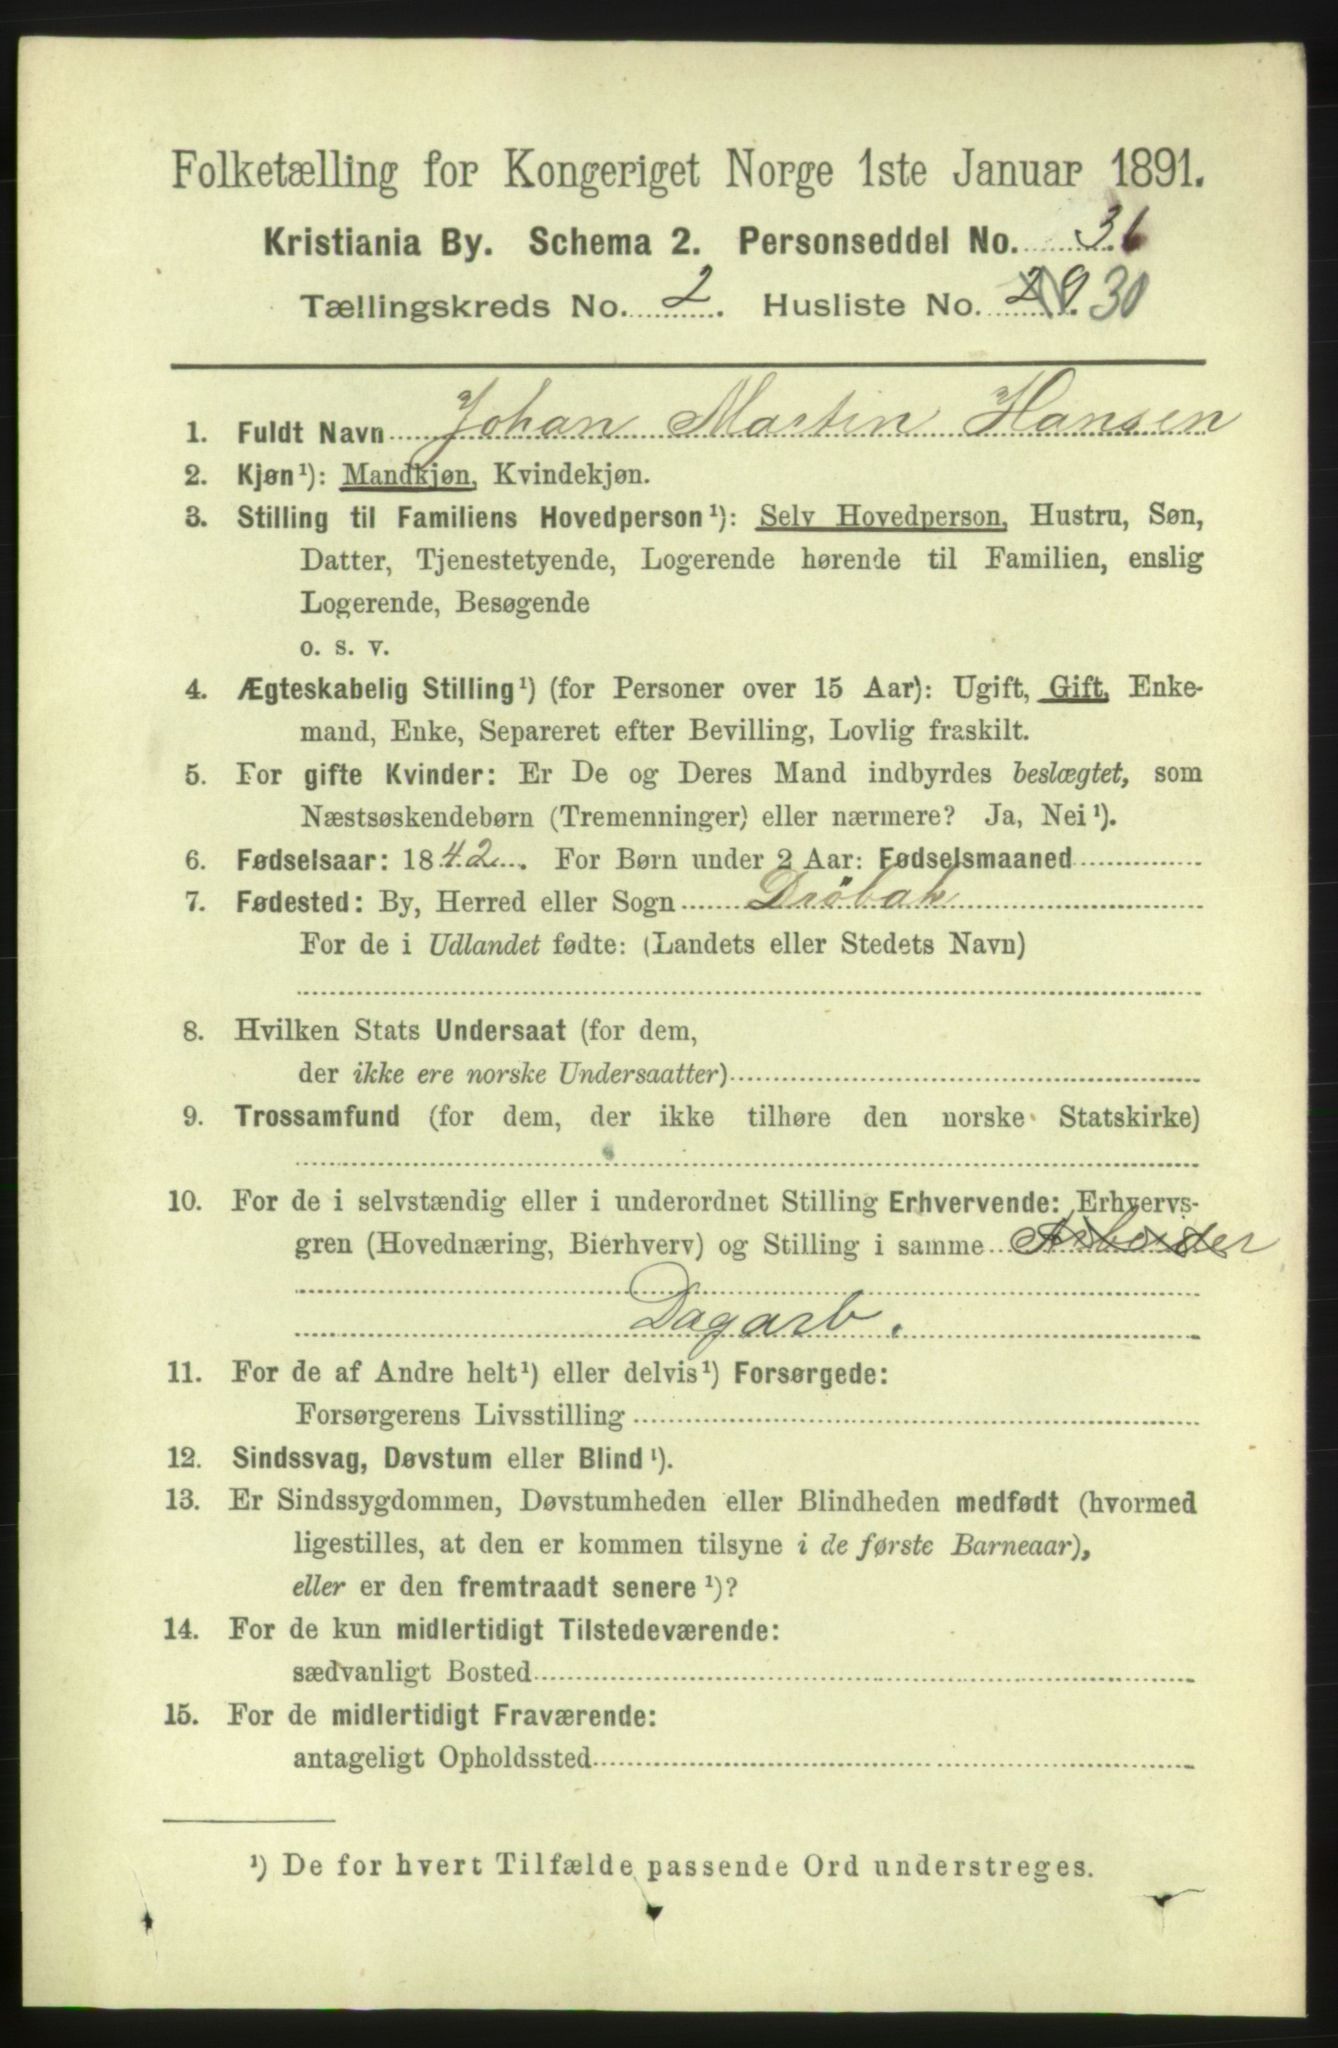 Folketælling for Kongeriget Norge 1ste Januar 1891.
Kristiania By. Schema 2. Personseddel No. 36
Tællingskreds No. 2. Husliste No. 29. 30
1. Fuldt Navn Johan Martin Hansen
2. Kjøn¹): Mandkjøn, Kvindekjøn.
3. Stilling til Familiens Hovedperson¹): Selv Hovedperson, Hustru, Søn,
Datter, Tjenestetyende, Logerende hørende til Familien, enslig
Logerende, Besøgende
o. s. v.
4. Ægteskabelig Stilling¹) (for Personer over 15 Aar): Ugift, Gift, Enke-
mand, Enke, Separeret efter Bevilling, Lovlig fraskilt.
5. For gifte Kvinder: Er De og Deres Mand indbyrdes beslægtet, som
Næstsøskendebørn (Tremenninger) eller nærmere? Ja, Nei¹).
6. Fødselsaar: 1842. For Børn under 2 Aar: Fødselsmaaned
7. Fødested: By, Herred eller Sogn Drøbak
For de i Udlandet fødte: (Landets eller Stedets Navn)
8. Hvilken Stats Undersaat (for dem,
der ikke ere norske Undersaatter)
9. Trossamfund (for dem, der ikke tilhøre den norske Statskirke)
10. For de i selvstændig eller i underordnet Stilling Erhvervende: Erhvervs-
gren (Hovednæring, Bierhverv) og Stilling i samme Arbeider
Dagarb.
11. For de af Andre helt¹) eller delvis¹) Forsørgede:
Forsørgerens Livsstilling
12. Sindssvag, Døvstum eller Blind¹).
13. Er Sindssygdommen, Døvstumheden eller Blindheden medfødt (hvormed
ligestilles, at den er kommen tilsyne i de første Barneaar),
eller er den fremtraadt senere¹)?
14. For de kun midlertidigt Tilstedeværende:
sædvanligt Bosted
15. For de midlertidigt Fraværende:
antageligt Opholdssted
¹) De for hvert Tilfælde passende Ord understreges.